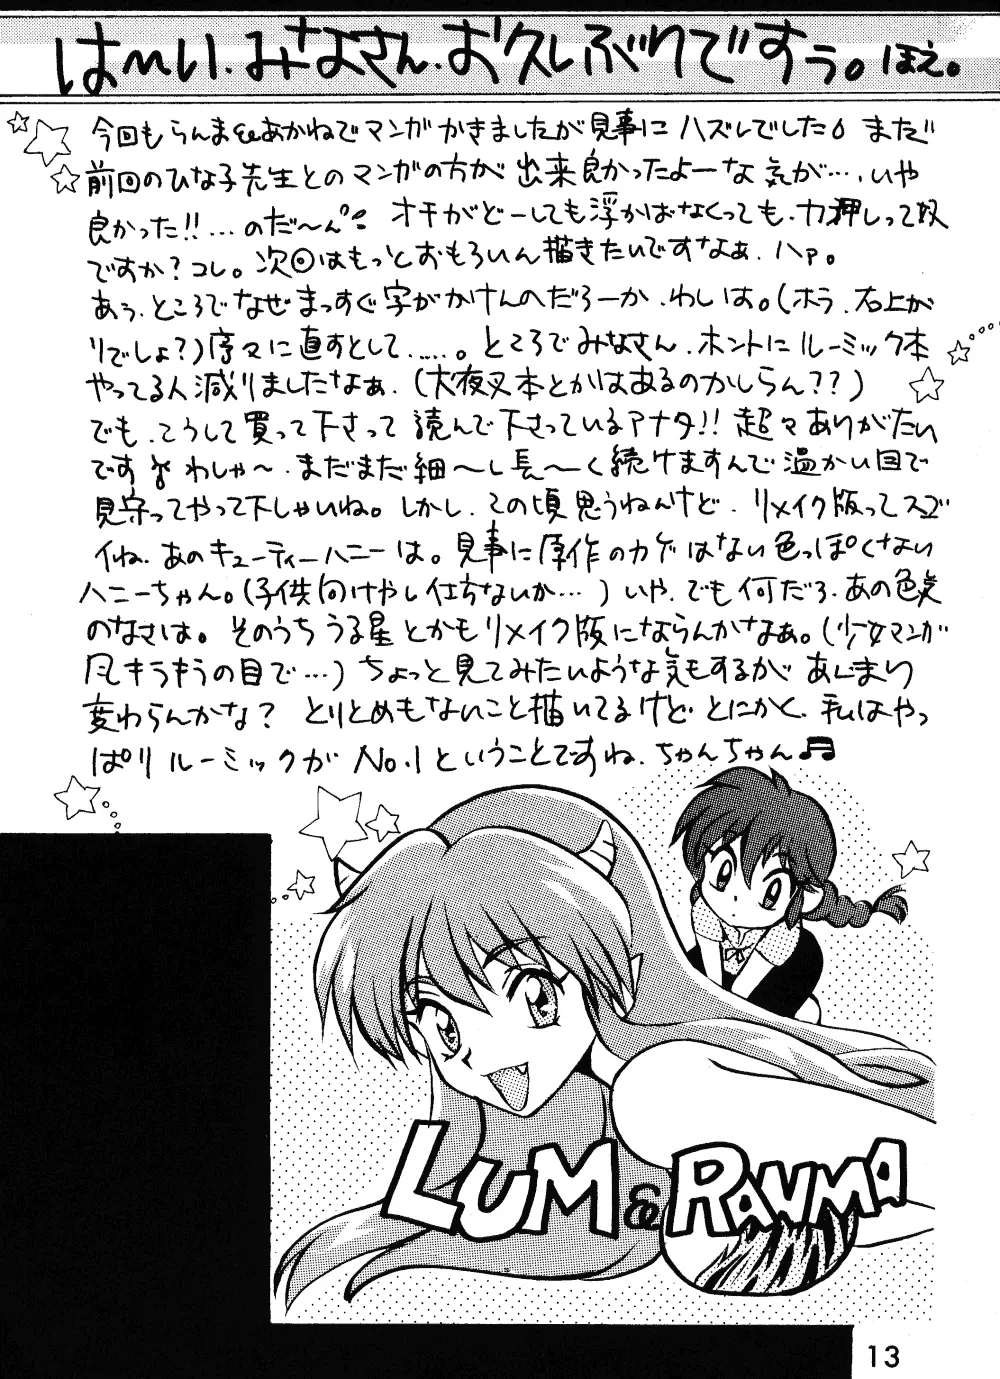 は〜い、みなさん、お久しぶりですぅ。ほえ。
今回もらんま&あかねでマンガかきましたが見事にハズしでした。まだ
前回のひな子先生とのマンガの方が出来良かったよーな気が…、いや
良かった!!…のだ〜ん オチがどーしても浮かばなくっても、力押しって奴
ですか?コレ。次回はもっとおもろいん描きたいですなぁ、ハァ。
あぅ、ところでなぜまっすぐ字がかけんのだろーか、わしは。(ホラ、右上が
りでしょ?)序々に直すとして……。ところでみなさん、ホントにルーミック本
やってる人減りましたなぁ、(犬夜叉本とかはあるのかしらん??)
でも、こうして買って下さって読んで下さっているアナタ!!超々ありがたい
です わしゃ〜、まだまだ細〜し長〜く続けますんで温かい目で
見守ってやって下しゃいね。しかし、この頃思うねんけど、リメイク版ってスゴ
イね、あのキューティーハニーは。見事に原作のカゲはない色っぽくない
ハニーちゃん。(子供向けやし仕方ないか…)いや、でも何だろ、あの色気
のなさは。そのうちうる星とかもリメイク版にならんかなぁ。(少女マンガ
風キラキラの目で…)ちょっと見てみたいような気もするが あんまり
変わらんかな? とりとめもないこと描いてるけど とにかく、私はやっ
ぱりルーミックがNo.1ということですね、ちゃんちゃん♬
LUM & RANMA
13